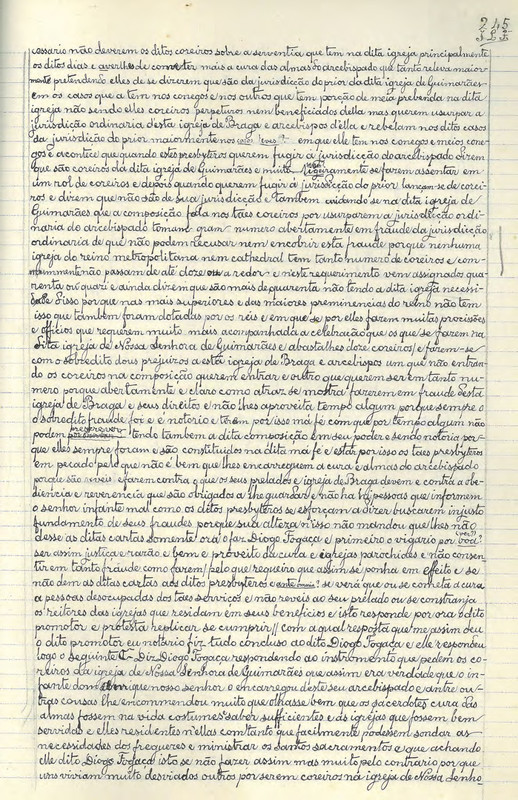 245
cossario não deverem os ditos coreiros sobre a serventia que tem na dita igreja principalmente
os ditos dias e averlhes de cometer mais a cura das almas do arcebispado que tanto releva maior-
mente pretendendo elles de se dizerem que são da jurisdicção do prior da dita igreja de Guimarães
em os casos que a tem nos conegos e nos outros que tem porção de meia prebenda na dita
igreja não sendo elles coreiros perpetuos nem beneficiados della mas querem usurpar a
jurisdição ordinaria desta igreja de Braga e arcebispos d'ella e rebelam nos ditos casos
da jurisdicção do prior maiormente nos em que elle tem nos conegos e meios cone-
gos e acontece que quando estes presbyteros querem fugir á jurisdicção do arcebispado dizem
que são coreiros da dita igreja de Guimarães e muito se fazem assentar em
um rol de coreiros e depois quando querem fugir á jurisdicção do prior lançam se de corei-
ros e dizem que não são de sua jurisdicção e tambem cuidando se na dita igreja de
Guimarães que a composição fala nos tães coreiros por usurparem a jurisdicção ordi-
naria do arcebispado tomam gram numero abertamente em fraude da jurisdicção
ordinaria de que não podem recusar nem encobrir esta fraude porque nenhuma
igreja do reino metropolitana nem cathedral tem tanto numero de coreiros e com-
mummente não passam de até doze ou a redor e n'este requerimento vem assignados qua-
renta ou quasi e ainda dizem que são mais de quarenta não tendo a dita igreja necessi-
dade d'isso por que nas mais superiores e das maiores preminencias do reino não tem
isso que tambem foram dotadas por os reis e em que se por elles fazem muitas procissões
e officios que requerem muito mais acompanhada a celebração que os que se fazem na
dita igreja de Nossa Senhora de Guimarães e abastalhes doze coreiros e fazem-se
com o sobredito dous prejuizos a esta igreja de Braga e arcebispos um que não entran-
do os coreiros na composição querem entrar e outro que querem ser em tanto nu-
mero porque abertamente e claro como atraz se mostra fazerem em fraude desta
igreja de Braga e seus direitos e não lhes aproveita tempo algum porque sempre o
o sobredito fraude foi e é notorio e tem por isso má fe com que por tempo algum não
podem prescrever tendo tambem a dita composição em seu poder e sendo notoria por-
que elles sempre foram e são constituidos na dita má fe e estar por isso os taes presbyteros
em pecado pelo que não é bem que lhes encarreguem a cura e almas do arcebispado
porque são reveis e fazem contra o que os seus prelados e igreja de Braga devem e contra a obe-
diencia e reverencia que são obrigados a lhe guardar e não ha hi pessoas que informem
o senhor infante mal como os ditos presbyteros se esforçam a dizer buscarem injusto
fundamento de seus fraudes porque sua alteza n'isso não mandou que lhes não
desse as ditas cartas somente ora o far Diogo Fogaça e primeiro o vigario por
ser assim justiça e razão e bem e proveito da cura e igrejas parochiaes e não consen-
tirem tanto fraude como fazem pelo que requeiro que assim se ponha em effeito e se
não dem as ditas cartas aos ditos presbyteros e se verá que ou se cometa a cura
a pessoas desocupadas dos taes serviços e não reveis ao seu prelado ou se constranja
os reitores das igrejas que residam em seus beneficios e isto responde por ora o dito
promotor e protesta replicar se cumprir // com a qual resposta que me assim deu
o dito promotor eu notario fiz tudo concluso ao dito Diogo Fogaça e elle respondeu
logo o seguinte Diz Diogo Fogaça respondendo ao instromento que pedem os co-
reiros da igreja de Nossa Senhora de Guimarães que assim era verdade que o in-
fante dom Amrique nosso senhor o encarregou d'este seu arcebispado e antre ou-
tras cousas lhe encommendou muito que olhasse bem que os sacerdotes cura das
almas fossem na vida costumes saber sufficientes e ás igrejas que fossem bem
servidas e elles residentes n'ellas com tanto que facilmente podessem sondar as
necessidades dos freguezes e ministrar os santos sacramentos e que achando
elle dito Diogo Fogaça isto se não fazer assim mas muito pelo contrario por que
uns viviam muito desviados outros por serem coreiros na igreja de Nossa Senho-